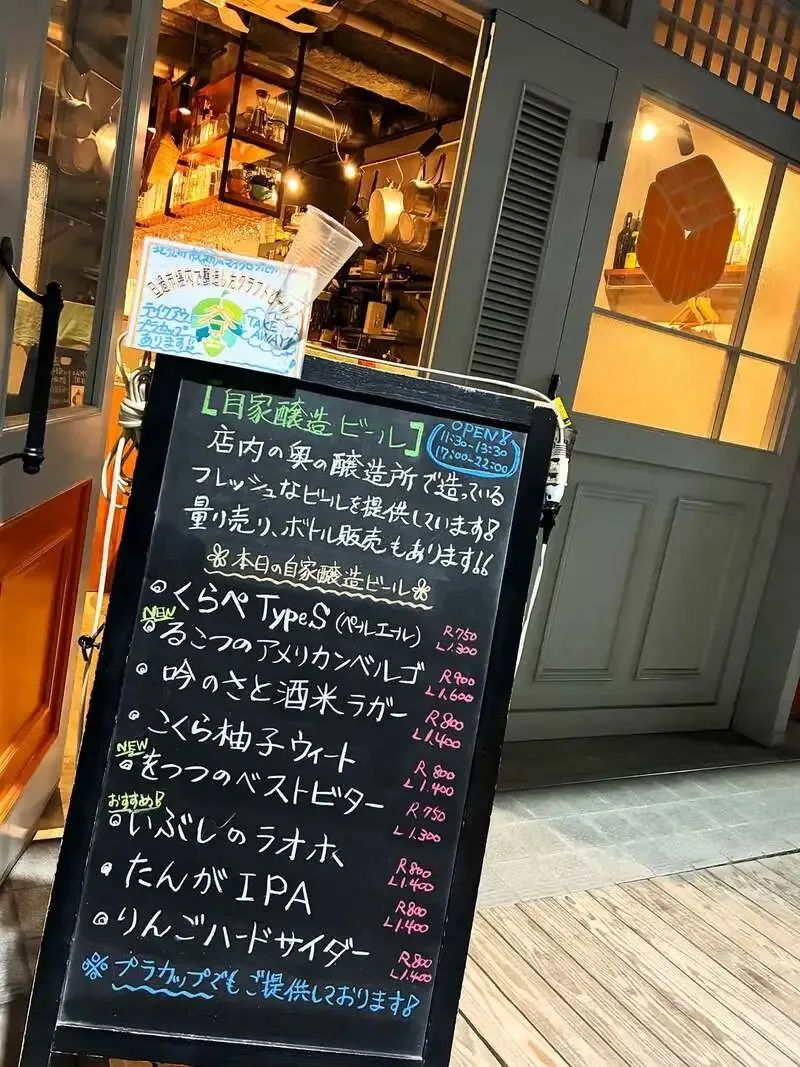 旦過市場内で醸造したクラフトビール
テイクアウト
プラカップ
あります!!
TAKE
AWAY
【自家醸造ビール】
OPEN!
11:30~13:30
17:00~22:00
店内の奥の醸造所で造っている
フレッシュなビールを提供しています!
量り売り、ボトル販売もあります!!
本日の自家醸造ビール
くらぺ TypeS (ペールエール) R750 L1.300
NEW
るこつのアメリカンベルゴ R900 L1.600
吟のさと酒米ラガー R800 L1.400
こくら柚子ウィート R800 L1.400
NEW
をっつのベストビター R750 L1.300
おすすめ!
いぶしのラオホ R800 L1.400
たんがIPA R800 L1.400
りんごハードサイダー R800 L1.400
※プラカップでもご提供しております!